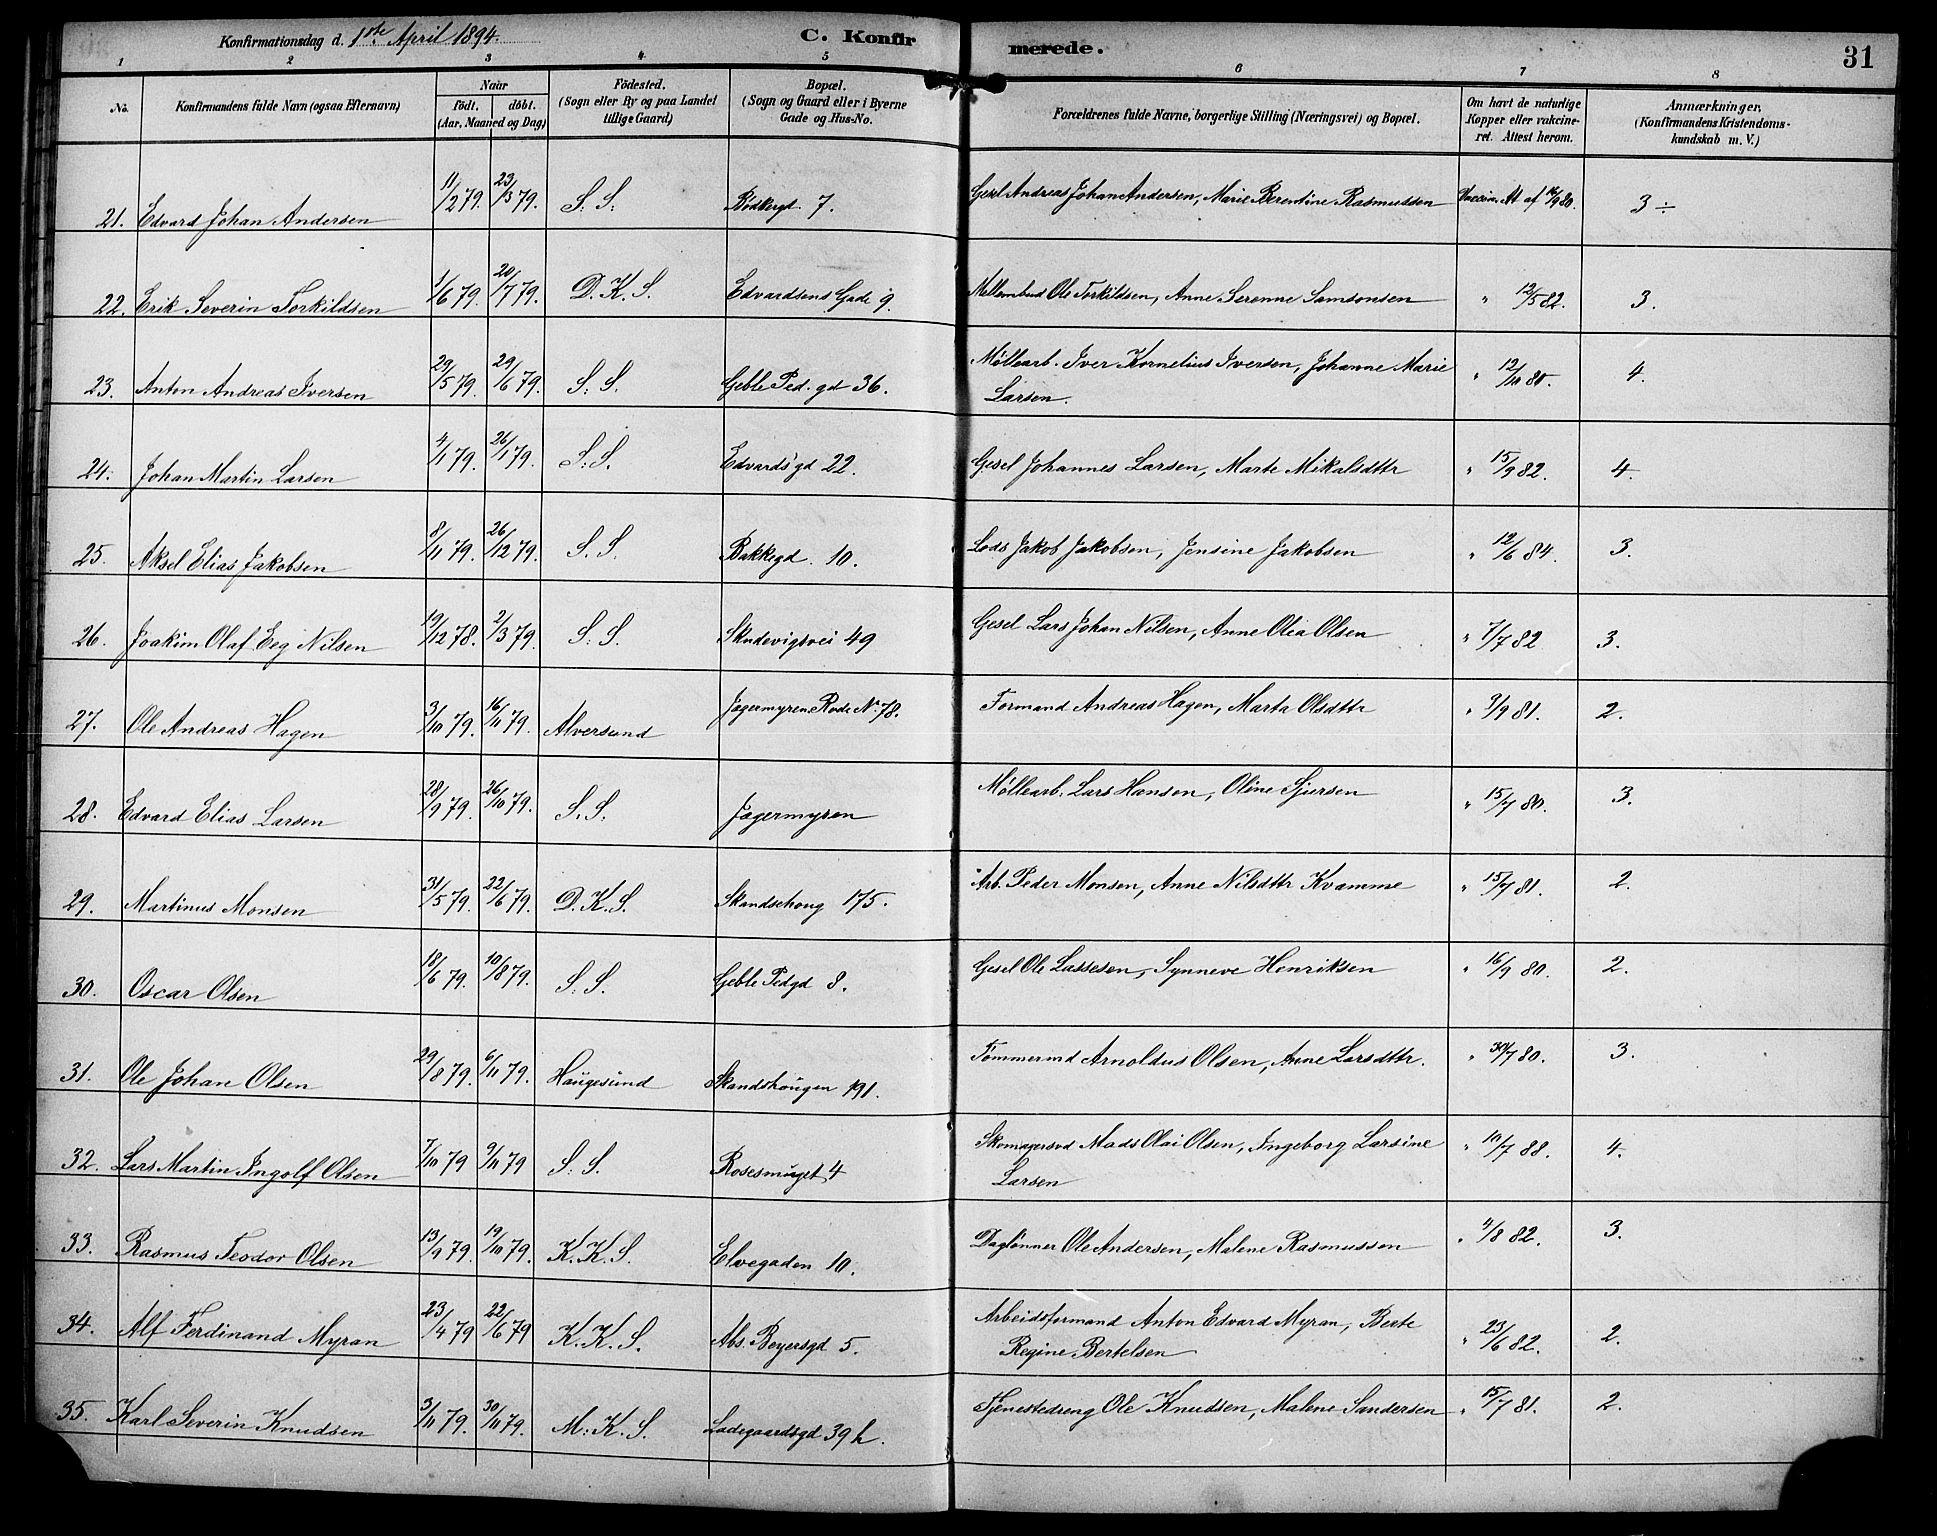 Konfirmationsdag d. 1ste April 1894. C. Konfirmerede. 31
1 2 3 4 5 6 7 8
No. Konfirmandens fulde Navn (ogsaa Efternavn) Naar födt. döbt. (Aar, Maaned og Dag) Födested. (Sogn eller By og paa Landet tillige Gaard) Bopæl. (Sogn og Gaard eller i Byerne Gade og Hus-No. Forældrenes fulde Navne, borgerlige Stilling (Næringsvei) og Bopæl. Om havt de naturlige Kopper eller vakcineret. Attest herom. Anmærkninger. (Konfirmandens Kristendomskundskab m. V.)
21. Edvard Johan Andersen 11/2 79. 23/3 79. S. S. Bødkergd. 7. Gesel Andreas Johan Andersen, Marie Berentine Rasmussen Vaccin. At af 16/9 80. 3 ÷
22. Erik Severin Torkildsen 1/6 79. 20/7 79. D. K. S. Edvardsens Gade 9. Ole Torkildsen, Anne Serenne Samsonsen " 12/5 82. 3.
23. Anton Andreas Iversen 29/5 79. 29/6 79. S. S. Geble Ped. gd 36. Møllearb. Iver Kornelius Iversen, Johanne Marie " 12/10 80. 4.
Larsen.
24. Johan Martin Larsen 4/1 79. 26/1 79. S. S. Edvards gd 22. Gesel Johannes Larsen, Marte Mikalsdttr " 15/9 82. 4.
25. Aksel Elias Jakobsen 8/11 79. 26/12 79. S. S. Bakkegd. 10. Lods Jakob Jakobsen, Jensine Jakobsen " 12/6 84. 3.
26. Joakim Olaf Eeg Nilsen 19/12 78. 2/3 79. S. S. Skudevigsvei 49 Gesel Lars Johan Nilsen, Anne Olea Olsen " 7/7 82 3.
27. Ole Andreas Hagen 3/10 79. 16/11 79. Alversund Jægermyren Rode No 78. Formand Andreas Hagen, Marta Olsdttr " 9/9 81. 2.
28. Edvard Elias Larsen 28/9 79. 26/10 79. S. S. Jægermyren Møllearb. Lars Hansen, Oline Sjursen " 15/7 80. 3.
29. Martinus Monsen 31/5 79. 22/6 79. D. K. S. Skandsehoug 175. Arb. Peder Monsen, Anne Nilsdttr Kvamme " 15/7 81. 2.
30. Oscar Olsen 18/6 79. 10/8 79. S. S. Geble Pedgd 8. Gesel Ole Lassesen, Synneve Henriksen " 16/9 80. 2.
31. Ole Johan Olsen 29/8 79. 6/11 79. Haugesund Skandshougen 191. Tømmermd Arnoldus Olsen, Anne Larsdttr. " 30/7 80. 3.
32. Lars Martin Ingolf Olsen 7/10 79 9/11 79 S. S. Rosesmuget 4 Skomagersvd Mads Olai Olsen, Ingeborg Larsine " 10/7 88. 4.
Larsen
33. Rasmus Teodor Olsen 13/9 79. 19/10 79. K. K. S. Elvegaden 10. Daglønner Ole Andersen, Malene Rasmussen " 4/8 82. 3.
34. Alf Ferdinand Myran 23/4 79 22/6 79 K. K. S. Abs. Beyersgd 5. Arbeidsformand Anton Edvard Myran, Berte " 23/6 82. 2.
Regine Bertelsen
35. Karl Severin Knudsen 3/11 79. 30/11 79. M. K. S. Ladegaardsgd 39 h. Tjenestedreng Ole Knudsen, Malene Sandersen " 15/7 81. 2.